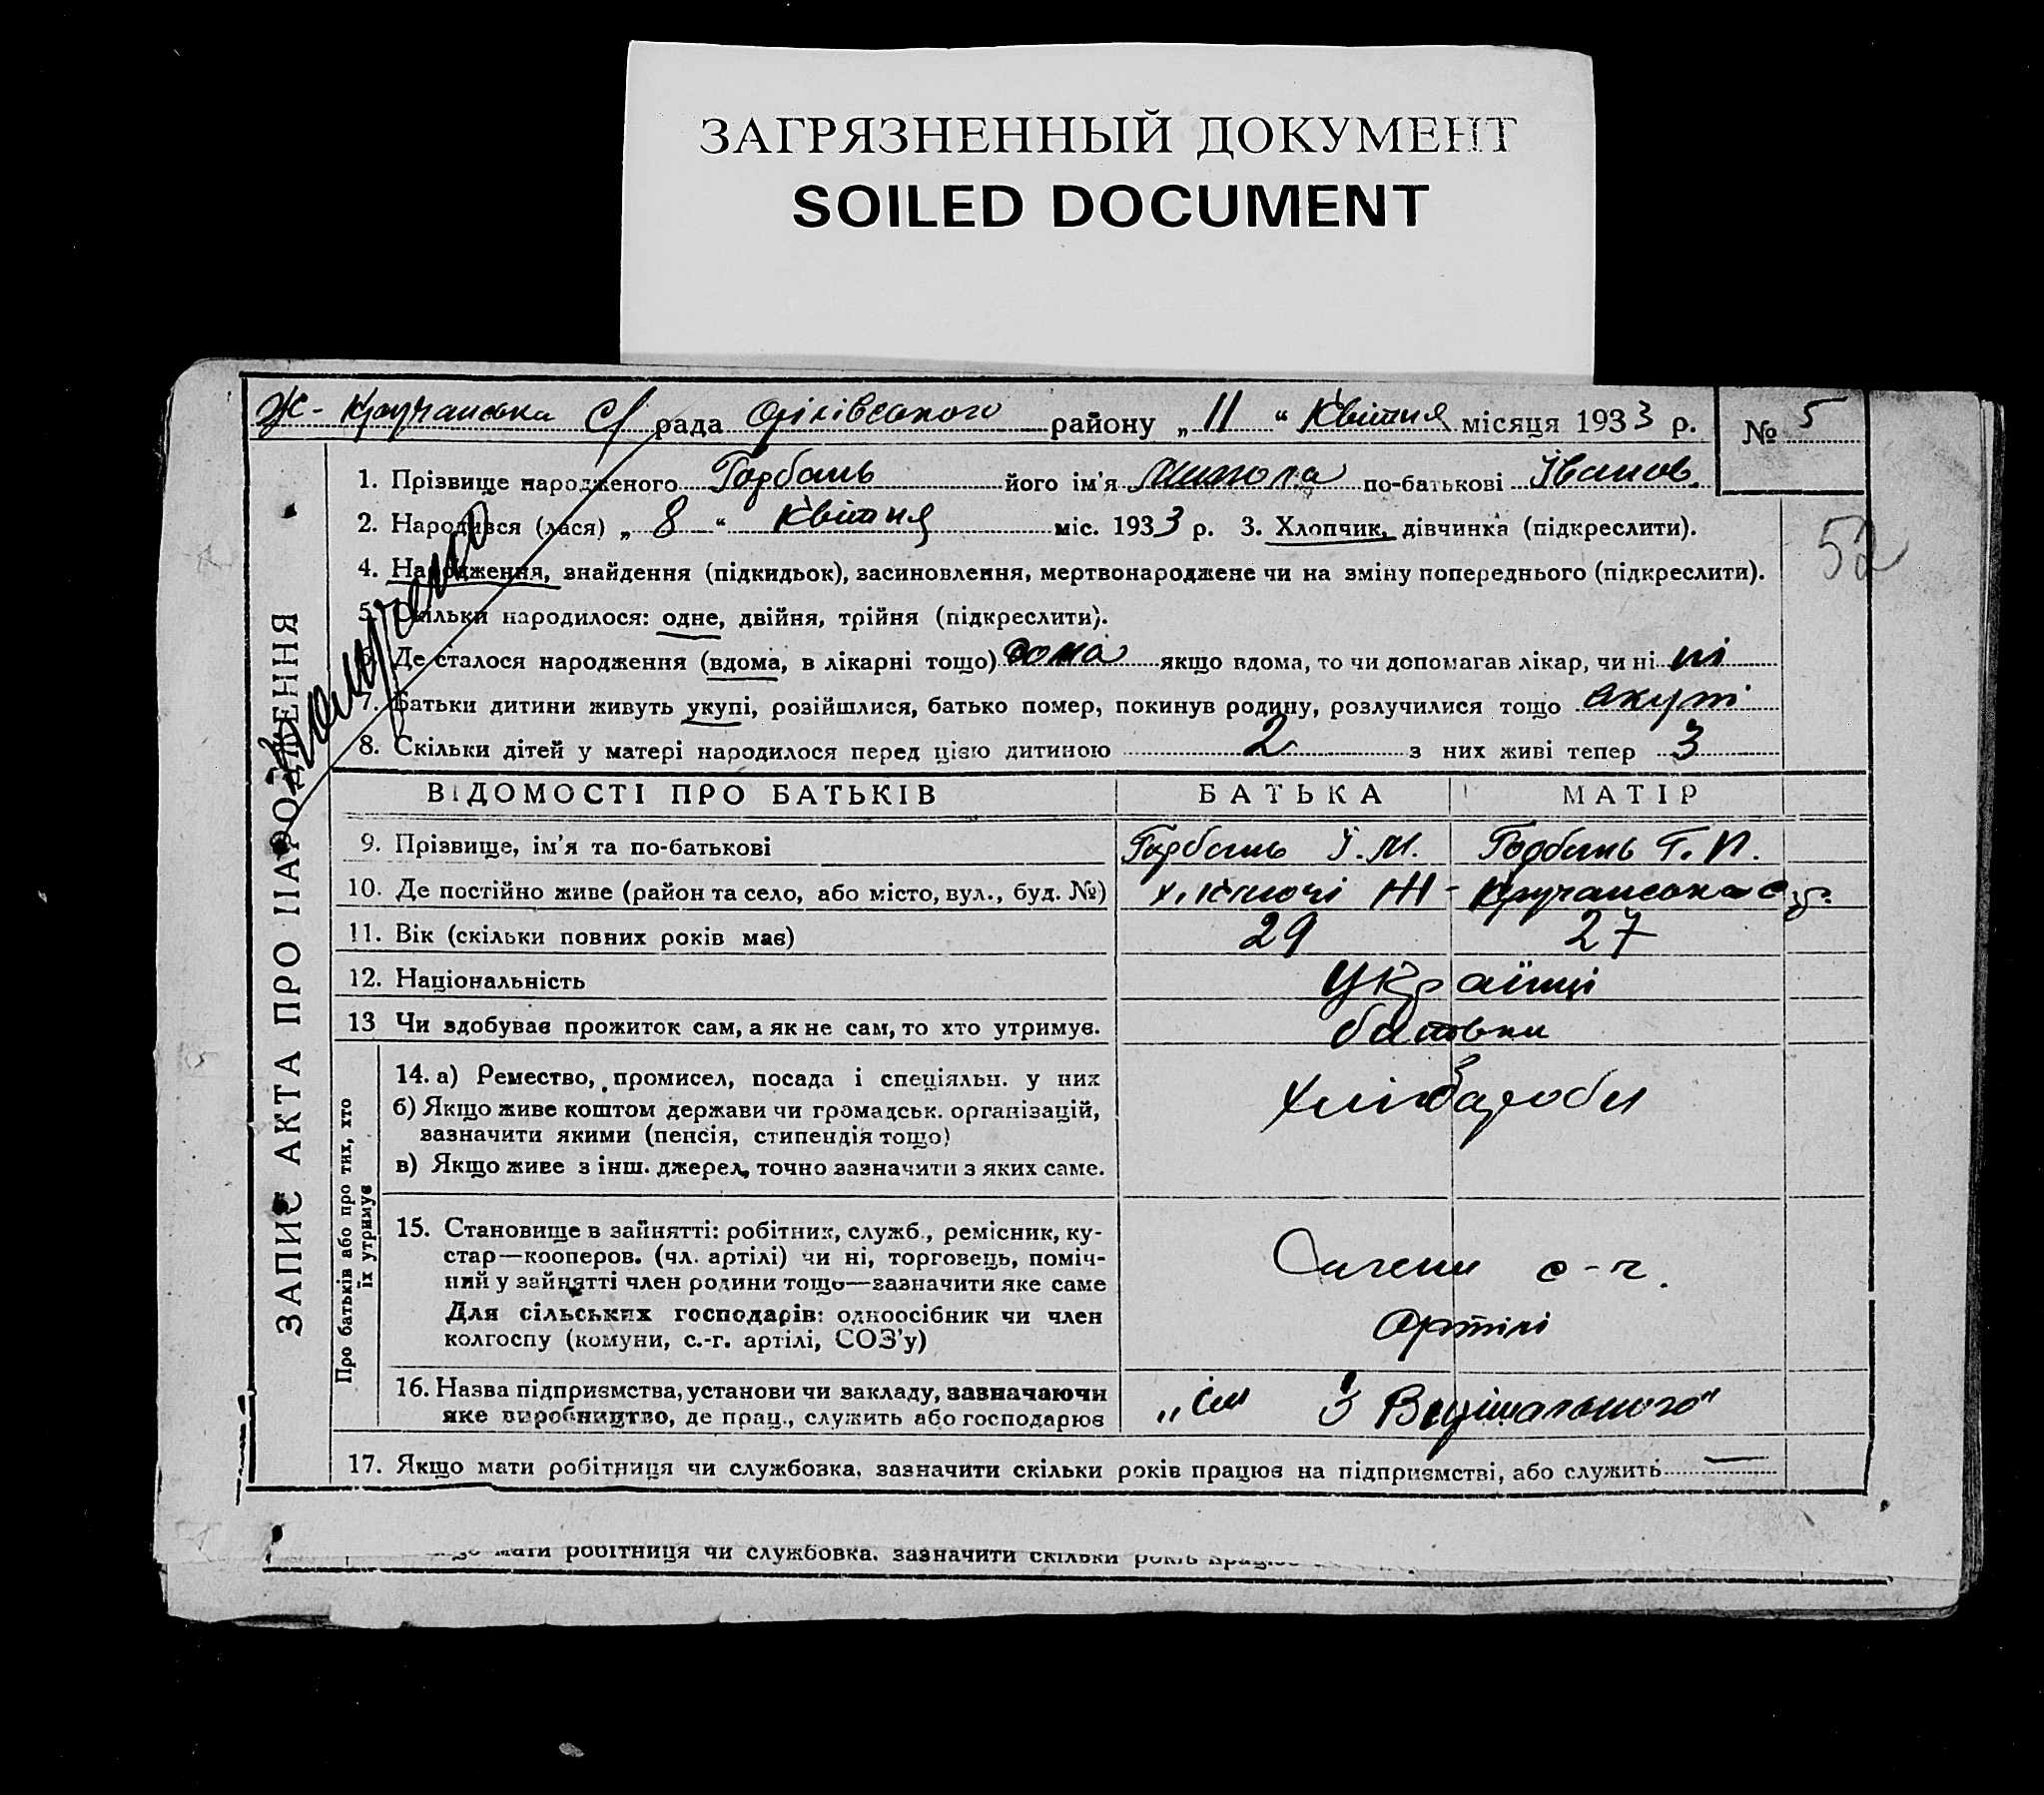 ЗАГРЯЗНЕННЫЙ ДОКУМЕНТ
SOILED DOCUMENT
Ж- Кручанська С/ рада Оріхівського району „ 11 “ Квітня місяця 1933 р. № 5
1. Прізвище народженого Горбань його ім'я Микола по-батькові Іванов.
2. Народився (лася) „ 8 “ Квітня міс. 1933 р. 3. Хлопчик, дівчинка (підкреслити).
52
4. Народження, знайдення (підкидьок), засиновлення, мертвонароджене чи на зміну попереднього (підкреслити).
5. Скільки народилося: одне, двійня, трійня (підкреслити).
6. Де сталося народження (вдома, в лікарні тощо) дома якщо вдома, то чи допомагав лікар, чи ні ні
7. Батьки дитини живуть укупі, розійшлися, батько помер, покинув родину, розлучилися тощо вкупі
8. Скільки дітей у матері народилося перед цією дитиною 2 з них живі тепер 3
ЗАПИС АКТА ПРО НАРОДЖЕННЯ
ВІДОМОСТІ ПРО БАТЬКІВ БАТЬКА МАТІР
9. Прізвище, ім'я та по-батькові Горбань І. М. Горбань Т. П.
10. Де постійно живе (район та село, або місто, вул., буд. №) х. Ключі Ж - Кручанська с/р.
11. Вік (скільки повних років має) 29 27
12. Національність Українці
13 Чи здобуває прожиток сам, а як не сам, то хто утримує. батьки
Про батьків або про тих, хто
їх утримує
14. а) Ремество, промисел, посада і спеціяльн. у них хлібороби
б) Якщо живе коштом держави чи громадськ. організацій,
зазначити якими (пенсія, стипендія тощо)
в) Якщо живе з інш. джерел, точно зазначити з яких саме.
15. Становище в зайнятті: робітник, служб., ремісник, ку-
стар—кооперов. (чл. артілі) чи ні, торговець, поміч-
ний у зайнятті член родини тощо—зазначити яке саме
Для сільських господарів: одноосібник чи член
колгоспу (комуни, с.-г. артілі, СОЗ'у)
с-г.
Артілі
16. Назва підприємства, установи чи закладу, зазначаючи
яке виробництво, де прац., служить або господарює
„ім 3 Вирішального“
17. Якщо мати робітниця чи службовка, зазначити скільки років працює на підприємстві, або служить —
мати робітниця чи службовка. зазначити скільки років працює